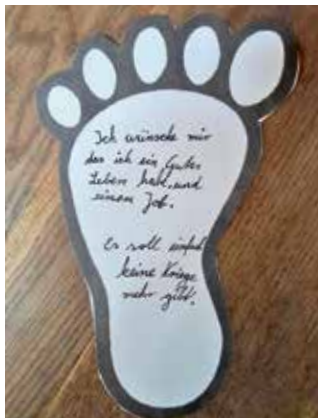 Ich wünsche mir
das ich ein Gutes
Leben habe, und
einen Job.
Es soll einfach
keine Kriege
mehr gibt.